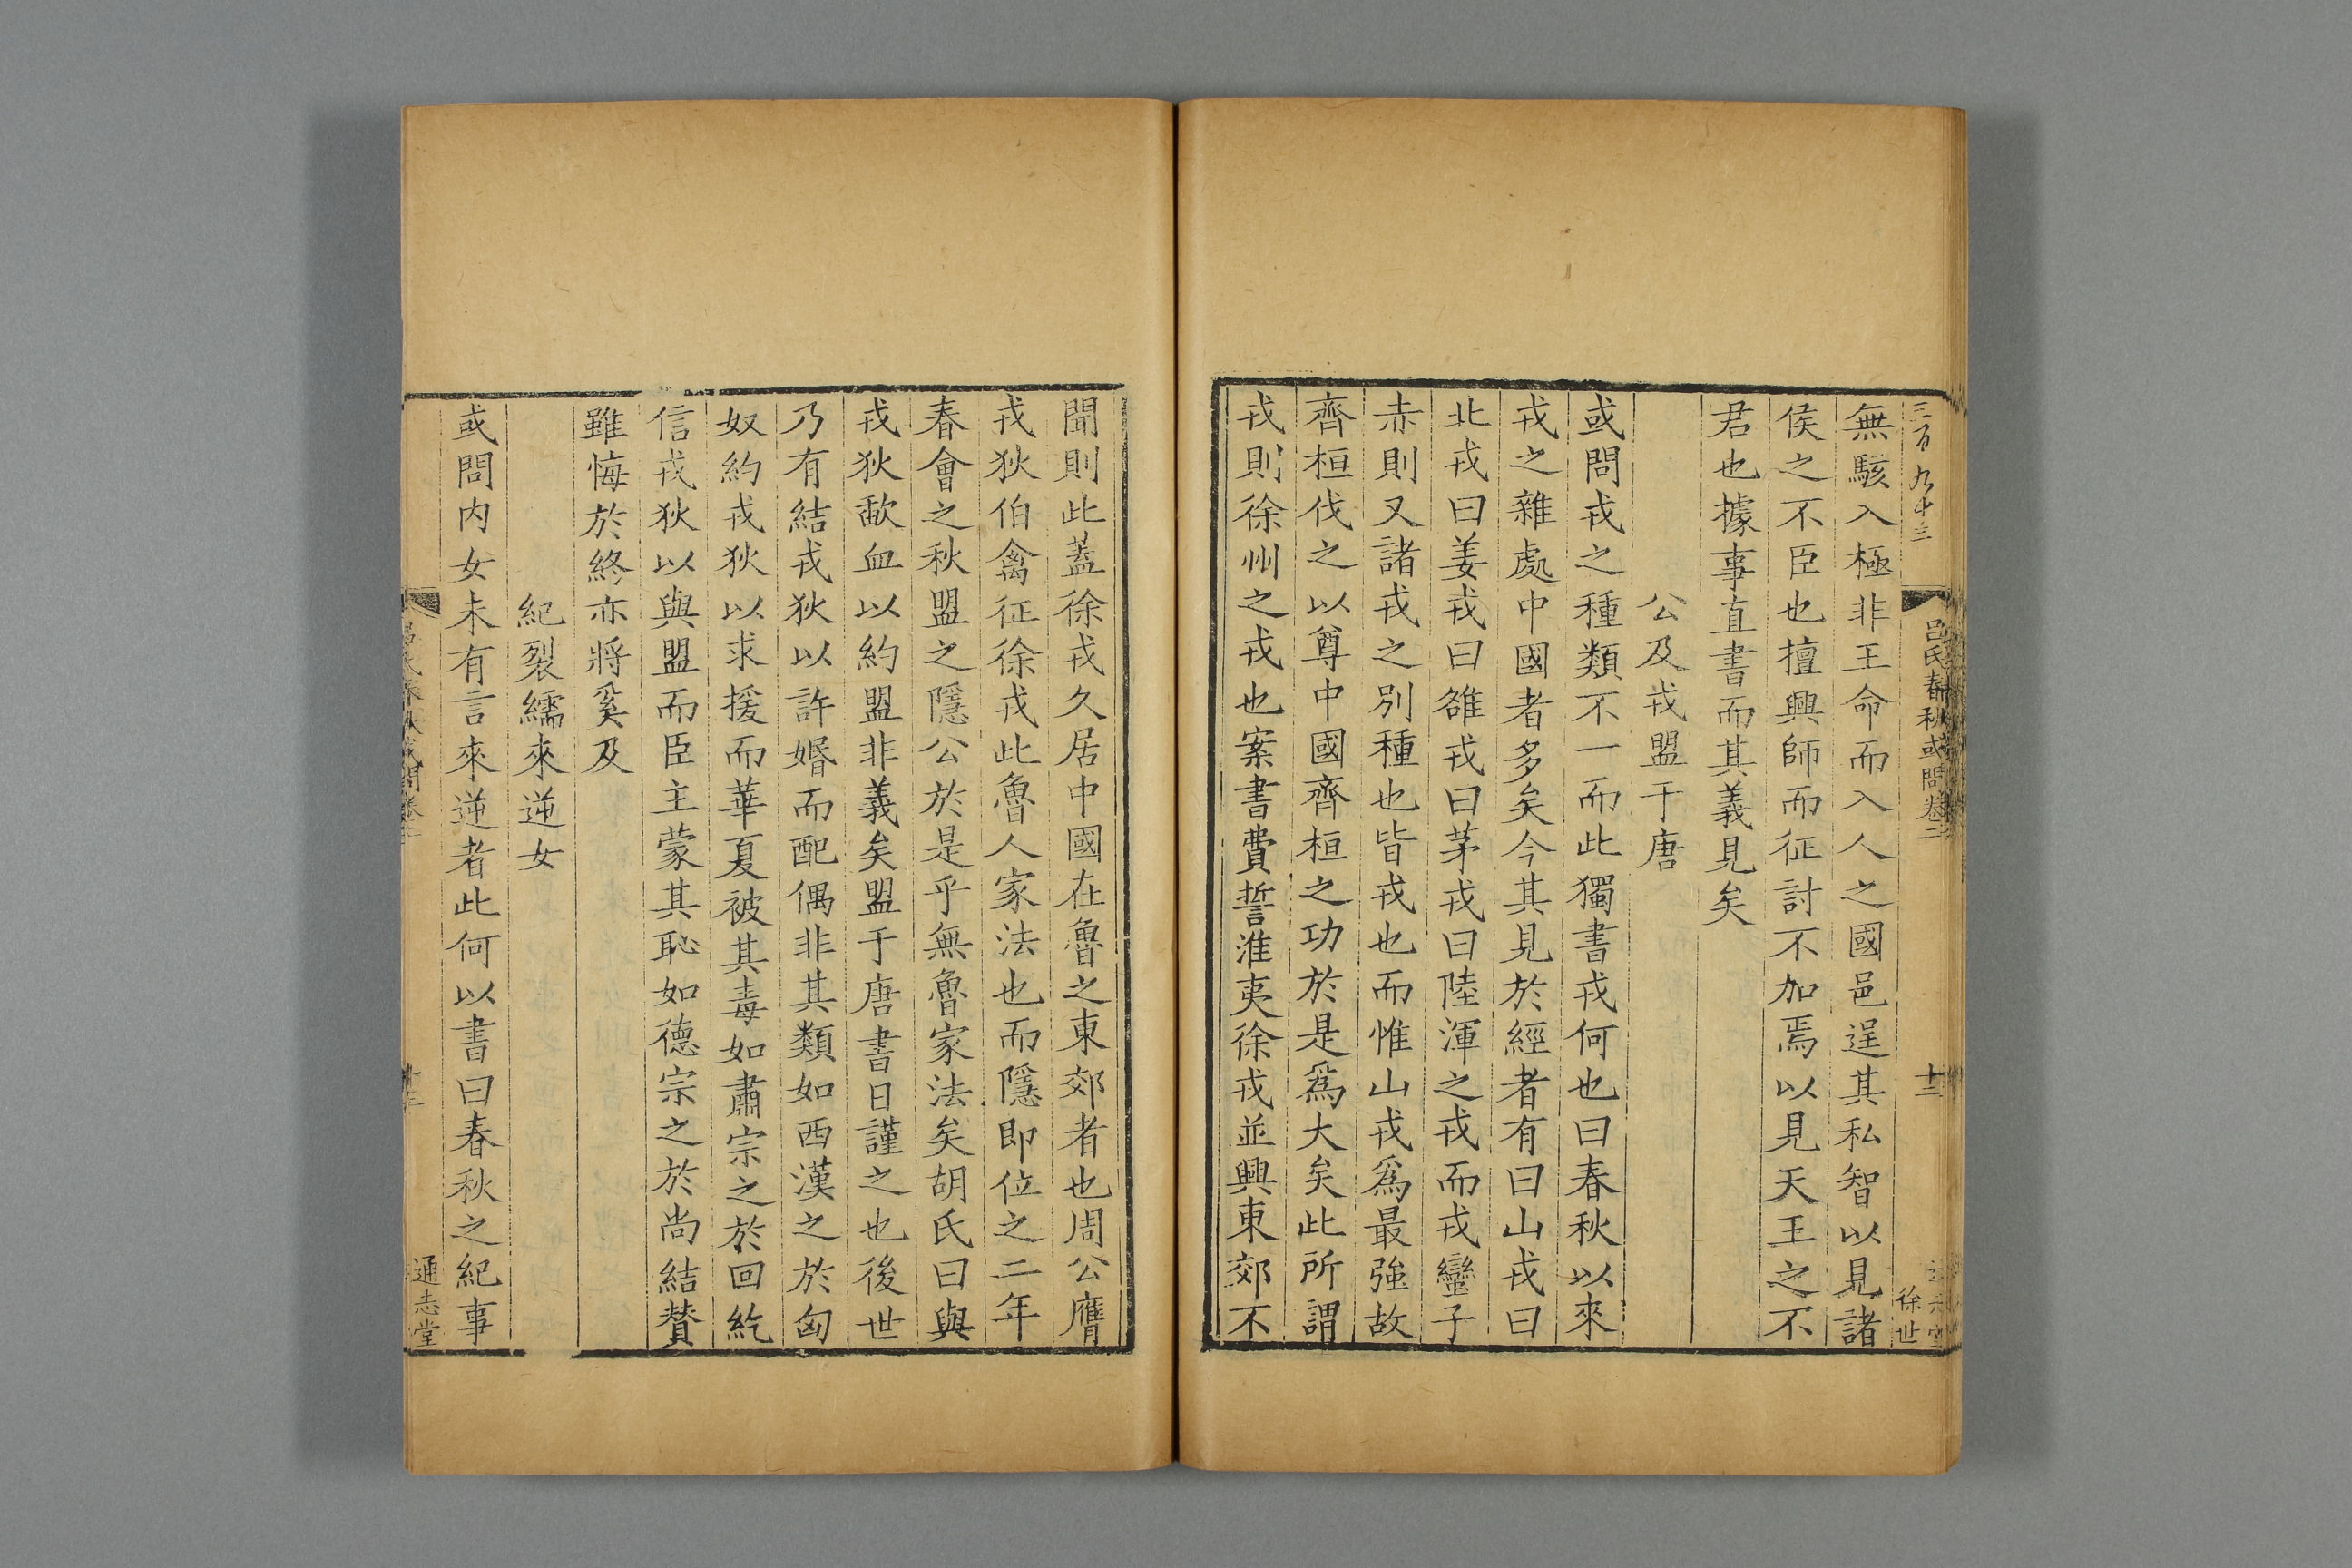 三百九十三
呂氏春秋或問卷二
十二
徐世
無駭入極非王命而入人之國邑逞其私智以見諸
侯之不臣也擅興師而征討不加焉以見天王之不
君也據事直書而其義見矣
公及戎盟于唐
或問戎之種類不一而此獨書戎何也曰春秋以來
戎之雜處中國者多矣今其見於經者有曰山戎曰
北戎曰姜戎曰雒戎曰茅戎曰陸渾之戎而戎蠻子
赤則又諸戎之別種也皆戎也而惟山戎爲最強故
齊桓伐之以尊中國齊桓之功於是爲大矣此所謂
戎則徐州之戎也案書費誓淮夷徐戎並興東郊不
聞則此蓋徐戎久居中國在魯之東郊者也周公膺
戎狄伯禽征徐戎此魯人家法也而隱即位之二年
春會之秋盟之隱公於是乎無魯家法矣胡氏曰與
戎狄歃血以約盟非義矣盟于唐書日謹之也後世
乃有結戎狄以許婚而配偶非其類如西漢之於匈
奴約戎狄以求援而華夏被其毒如肅宗之於回紇
信戎狄以與盟而臣主蒙其恥如德宗之於尚結贊
雖悔於終亦將奚及
紀裂繻來逆女
或問内女未有言來逆者此何以書曰春秋之紀事
通志堂